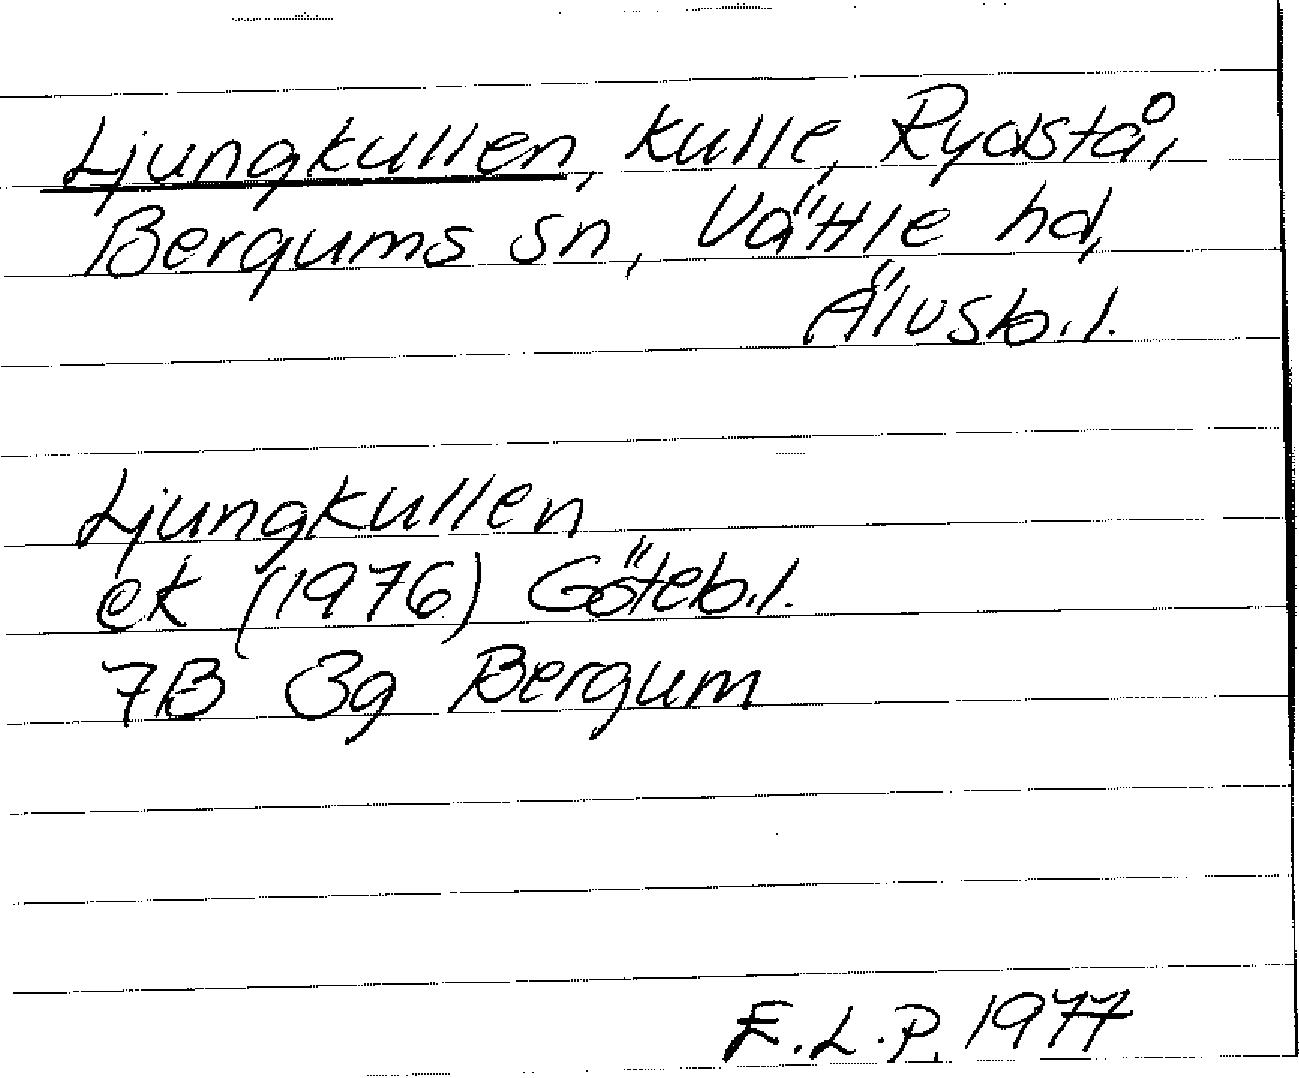 Ljungkullen, kulle, Rydstå,
Bergums sn, Vättle hd,
Älvsb.l.
Ljungkullen
ek (1976) Göteb.l.
7B 3g Bergum
E.L.P. 1977